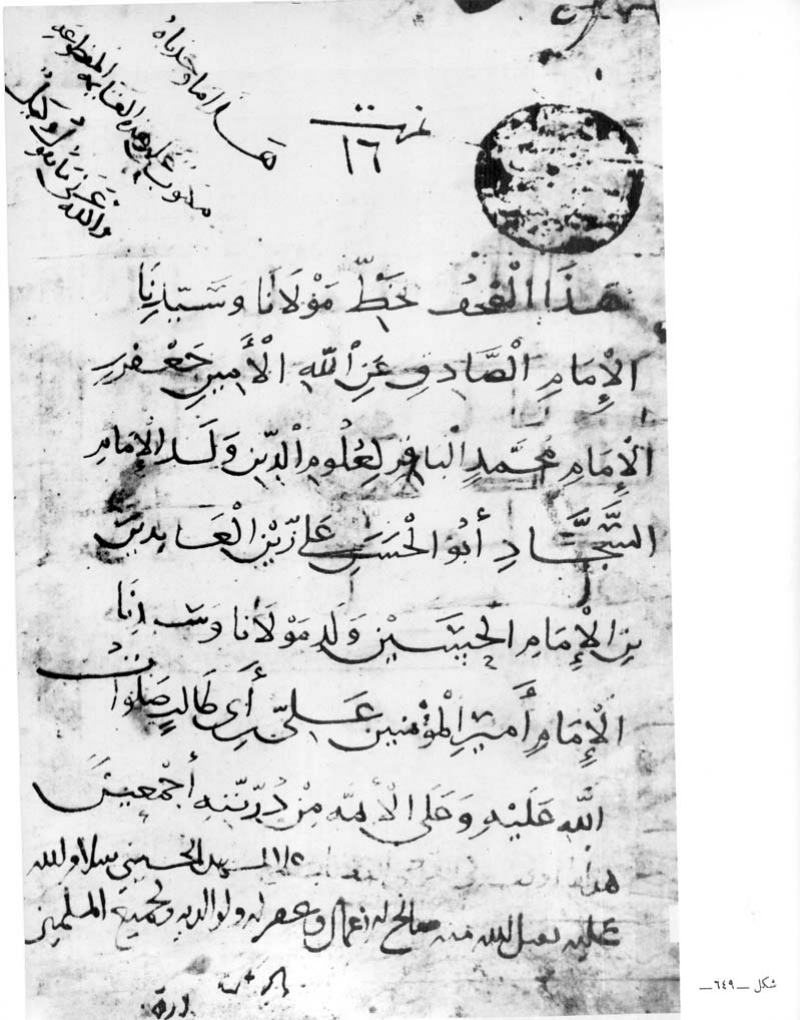 هذا ما وجدناه
مكتوب على هذه
والله على ما نقول وكيل
نمرت
١٦
هَذَا الْمُصْحَفُ بخَطِّ مَوْلَانَا وَسَيِّدِنَا
الْإِمَامِ الْصَّادِقِ عَنِ اللهِ الْأَمِينِ جَعْفَرِ
الْإِمَامِ مُحَمَّدٍ الْبَاقِرِ لِعُلُومِ الدِّينِ وَلَدِ الْإِمَامِ
السَّجَّادِ أَبُو الْحَسَنِ عَلِي زَيْنِ الْعَابِدِينَ
بْنِ الْإِمَامِ الْحُسَيْنِ وَلَدِ مَوْلَانَا وَسَيِّدِنَا
الْإِمَامِ أَمِيرِ الْمُؤْمِنِينَ عَلِيِّ بْنِ أَبِي طَالِبٍ صَلَوَاتُ
اللهِ عَلَيْهِ وَعَلَى الْأَئِمَّةِ مِنْ ذُرِّيَّتِهِ أَجْمَعِينَ
هذا المشهد الحسيني سلام الله
عليه تقبل الله منه صالح اعماله وغفر له ولوالديه ولجميع المسلمين
شكل ـ ٦٤٩ ـ